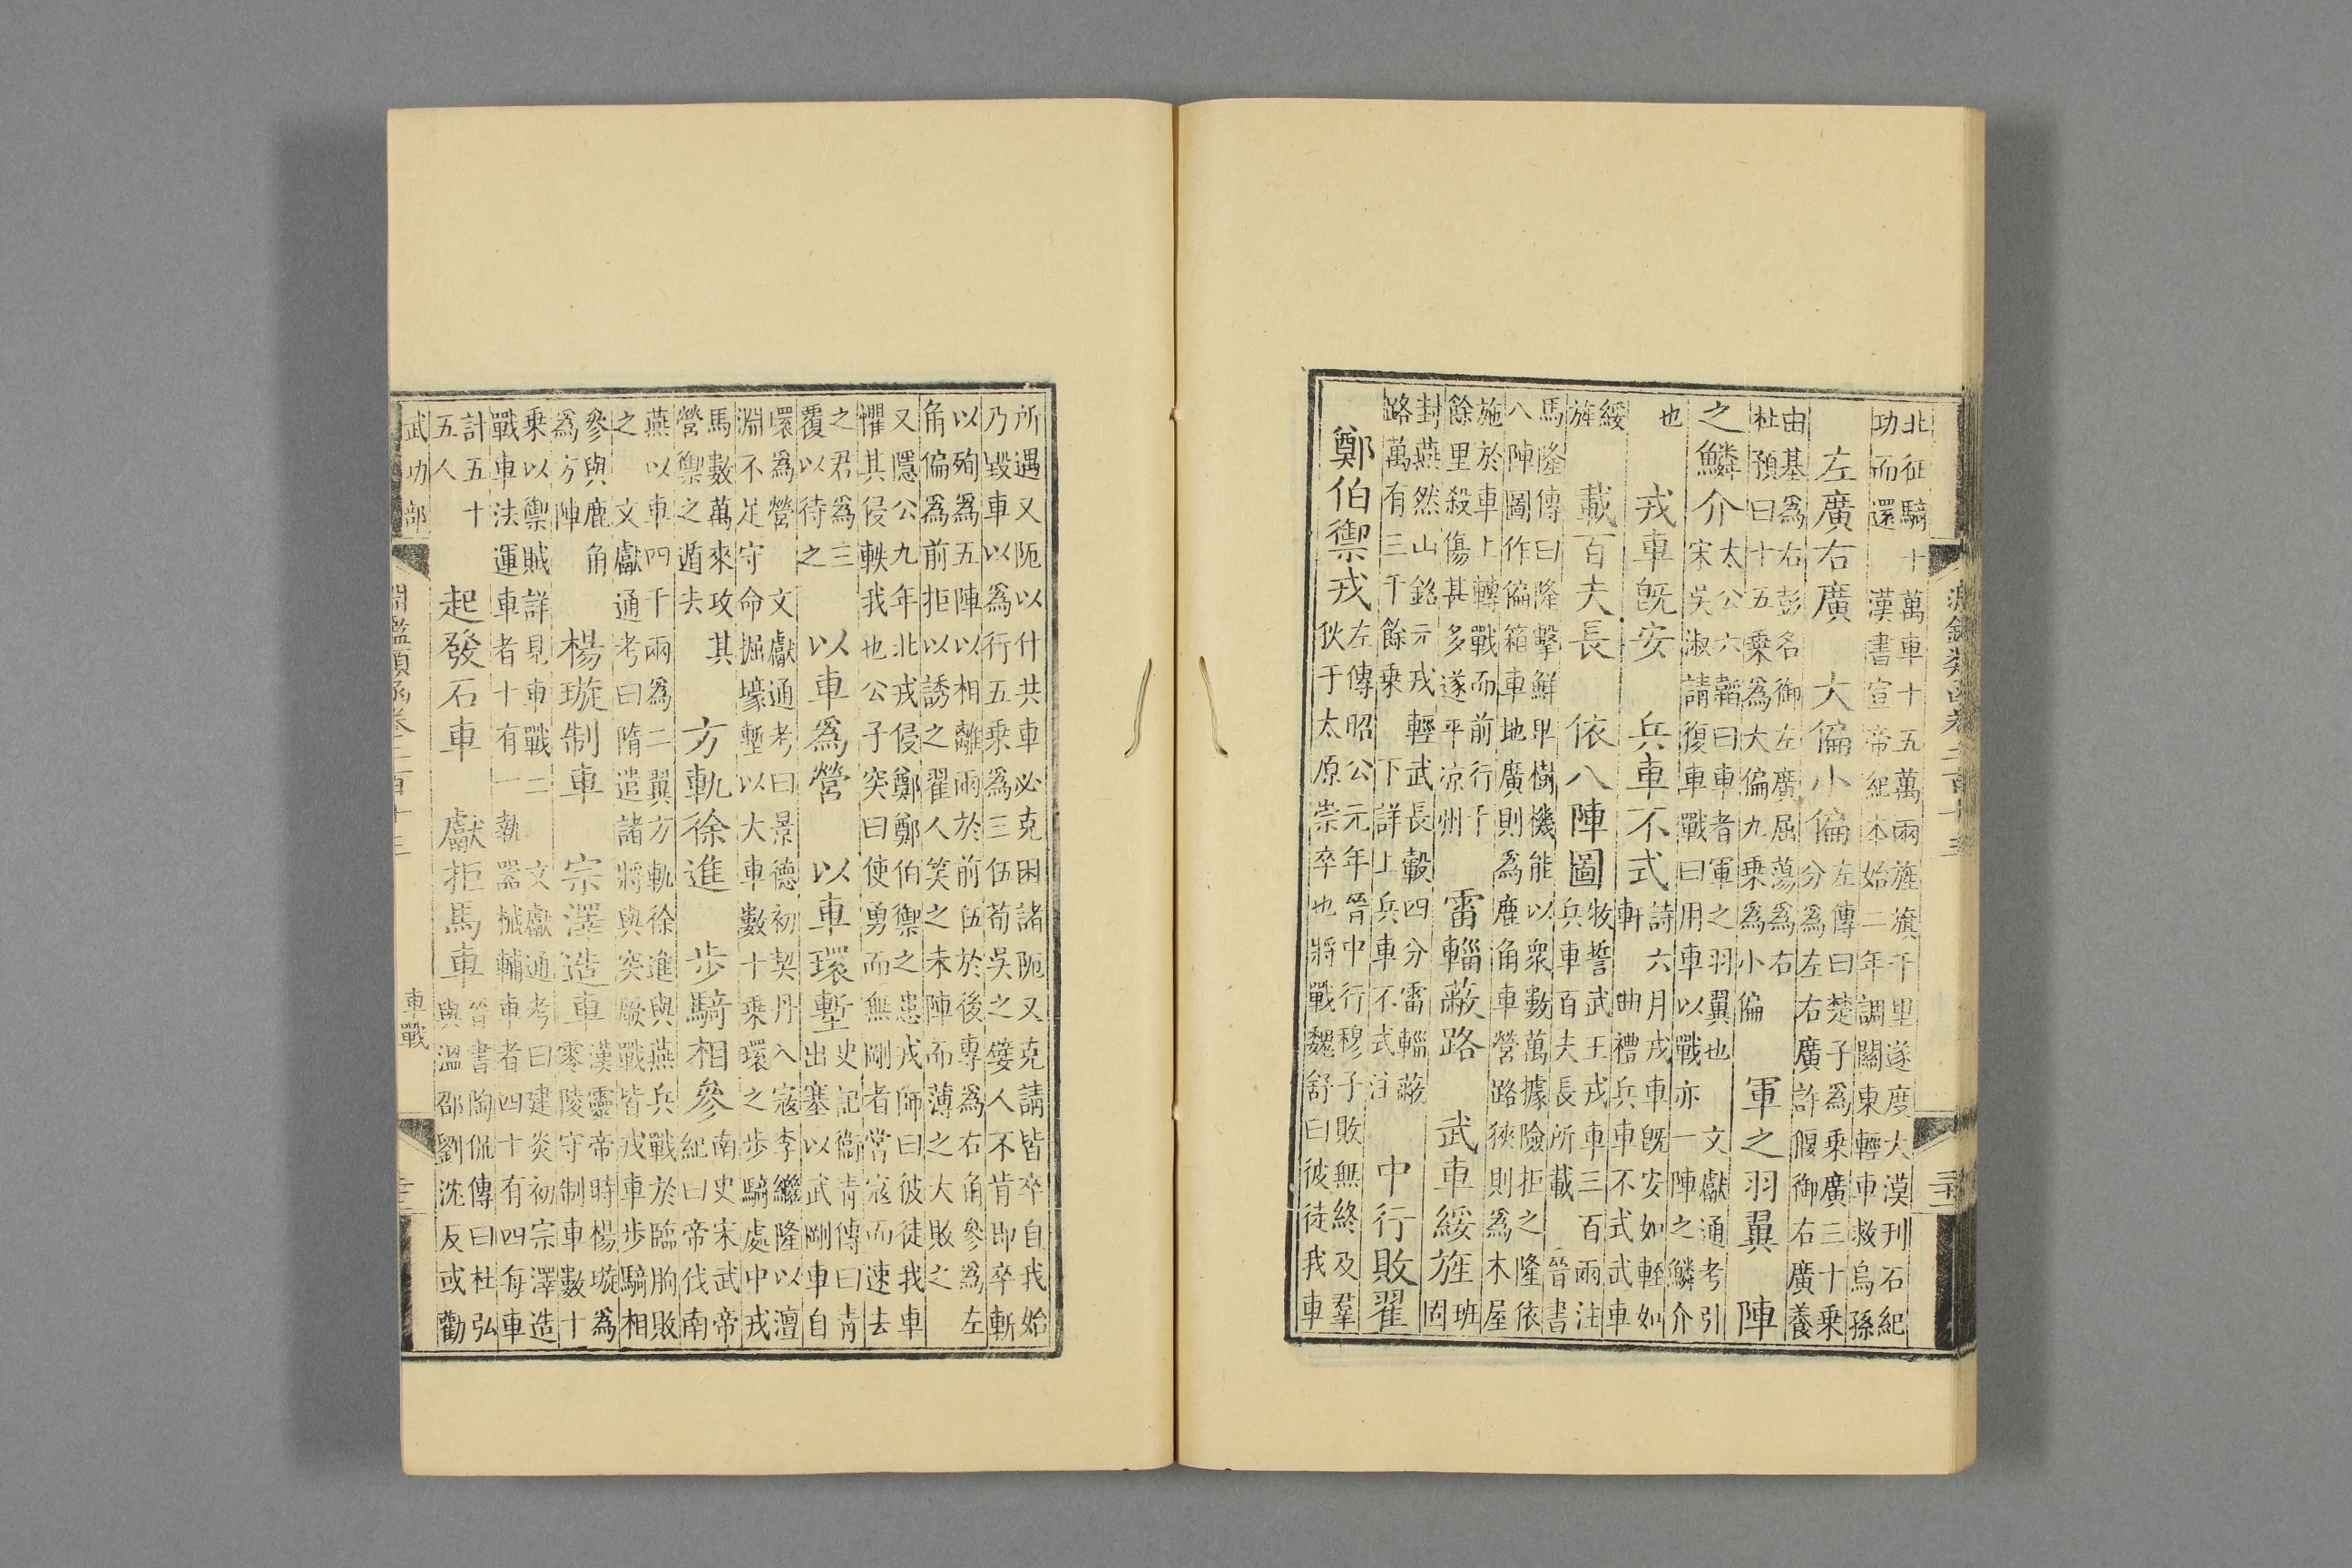 淵鑑類函卷二百十三
北征騎十萬車十五萬兩旌旗千里遂度大漠刋石紀
功而還 漢書宣帝紀本始二年調關東輕車救烏孫
左廣右廣 大偏小偏
左傳曰楚子為乗廣三十乗
分為左右廣許偃御右廣養
由基為右彭名御左廣屈蕩為右
杜預曰十五乗為大偏九乗為小偏
軍之羽翼 陣
之鱗介
太公六韜曰車者軍之羽翼也 文獻通考引
宋吳淑請復車戰曰用車以戰亦一陣之鱗介
也
戎車旣安 兵車不式
詩六月戎車旣安如輊如
軒 曲禮兵車不式武車
綏
旌
載百夫長 依八陣圖
牧誓武王戎車三百兩注
兵車百夫長所載 晉書
馬隆傳曰隆擊鮮卑樹機能以衆數萬據險拒之隆依
八陣圖作偏箱車地廣則為鹿角車營路狹則為木屋
施於車上轉戰而前行千
餘里殺傷甚多遂平涼州
雷輜蔽路 武車綏旌
班
固
封燕然山銘元戎輕武長轂四分雷輜蔽
路萬有三千餘乗 下詳上兵車不式注
中行敗翟
鄭伯禦戎
左傳昭公元年晉中行穆子敗無終及羣
狄于太原崇卒也將戰魏舒曰彼徒我車
所遇又阨以什共車必克困諸阨又克請皆卒自我始
乃毀車以為行五乗為三伍荀吳之嬖人不肯即卒斬
以殉為五陣以相離兩於前伍於後專為右角參為左
角偏為前拒以誘之翟人笑之未陣而薄之大敗之
又隱公九年北戎侵鄭鄭伯禦之患戎師曰彼徒我車
懼其侵軼我也公子突曰使勇而無剛者嘗寇而速去
之君為三
覆以待之
以車為營 以車環塹
史記衛青傳曰青
出塞以武剛車自
環為營 文獻通考曰景德初契丹入寇李繼隆以澶
淵不足守命掘壕塹以大車數十乗環之步騎處中戎
馬數萬來攻其
營禦之遁去
方軌徐進 步騎相參
南史宋武帝
紀曰帝伐南
燕以車四千兩為二翼方軌徐進與燕兵戰於臨朐敗
之 文獻通考曰隋遣諸將與突厥戰皆戎車步騎相
參與鹿角
為方陣
楊璇制車 宗澤造車
漢靈帝時楊璇為
零陵守制車數十
乗以禦賊詳見車戰二 文獻通考曰建炎初宗澤造
戰車法運車者十有一執器械輔車者四十有四每車
計五十
五人
起發石車 獻拒馬車
晉書陶侃傳曰杜弘
與溫邵劉沈反或勸
武功部 淵鑑類函卷二百十三 車戰